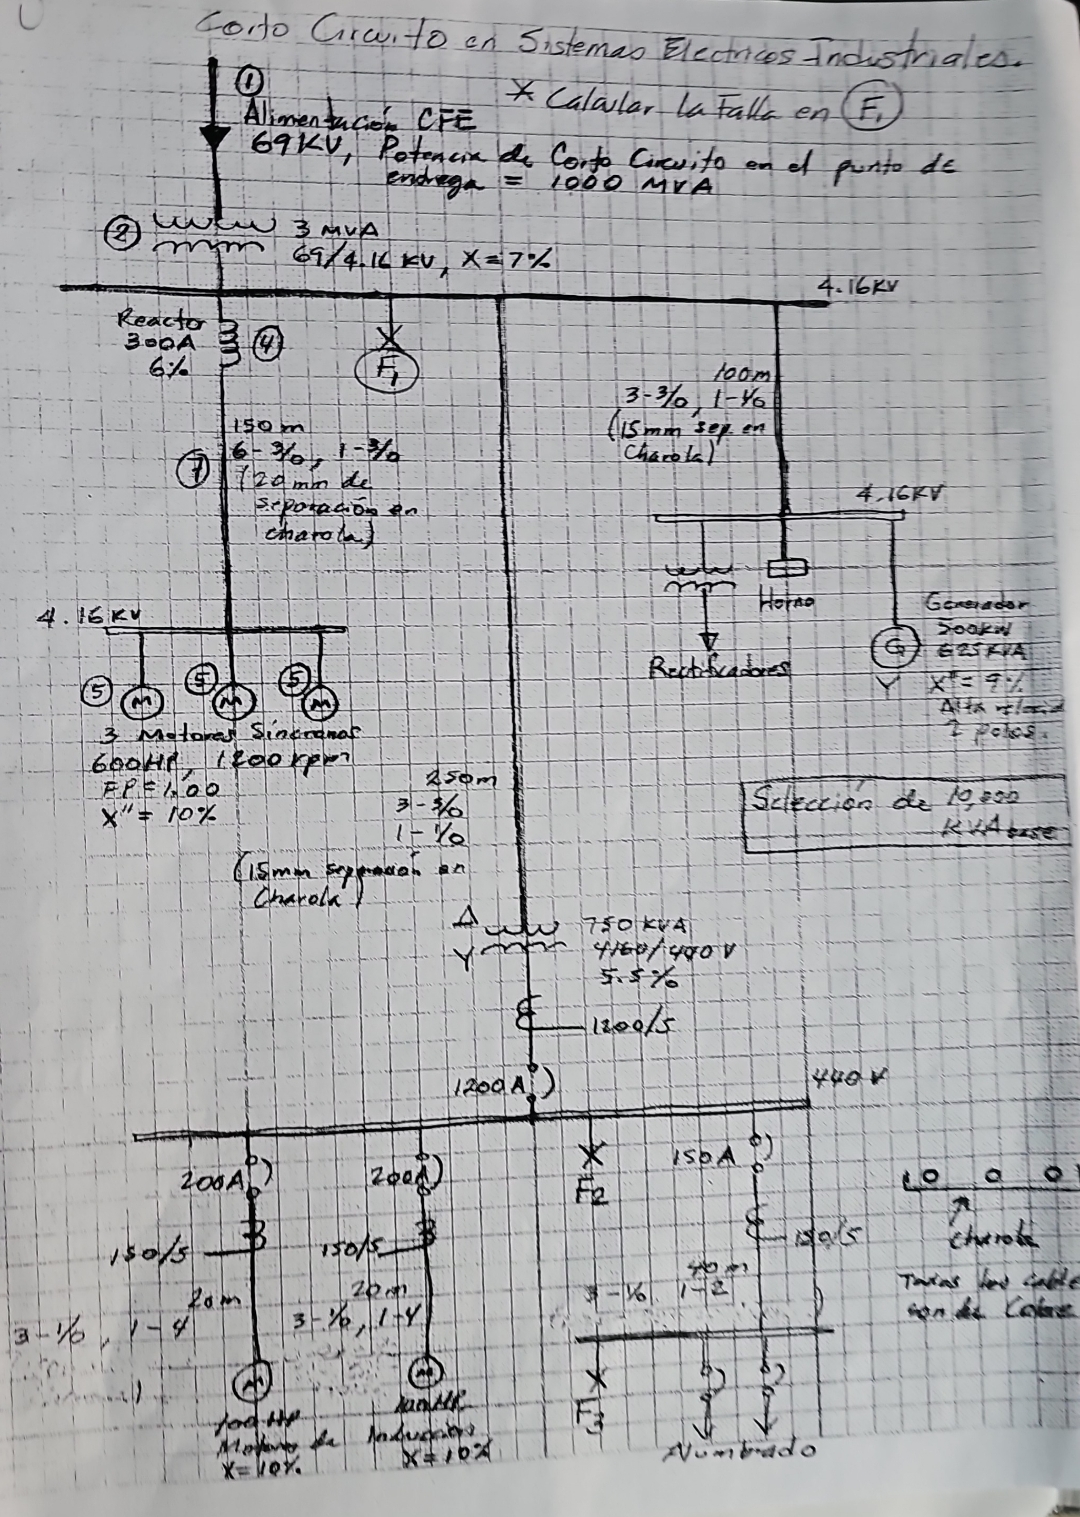 Corto Circuito en Sistemas Electricos Industriales.
* Calcular la Falla en F1
①
Alimentación CFE
69 KV, Potencia de Corto Circuito en el punto de
entrega = 1000 MVA
②
3 MVA
69/4.16 KV, X=7%
4.16KV
Reactor
300A
6%
④
F1
100m
3-3/0, 1-1/0
(15mm sep. en
Charola)
150m
6-3/0, 1-3/0
(20mm de
separación en
charola)
⑦
4.16KV
4.16 KV
Horno
Rectificadores
Generador
500KW
625KVA
X"= 9%
Alta
2 polos.
G
⑤ ⑤ ⑤
M M M
3 Motores Síncronos
600HP, 1200 rpm
FP=1.00
X"= 10%
250m
3-3/0
1-1/0
(15mm separación en
Charola)
Selección de 10,000
KVA base
Δ
Y
750 KVA
4160/440 V
5.5%
1200/5
1200A
440 V
200A
200A
F2
150A
150/5
150/5
150/5
20m
3-1/0, 1-4
20m
3-1/0, 1-4
40m
1-2
charola
Todos los cables
son de Cobre
M
M
100HP
100HP
Motores de Inducción
X=10%
X=10%
F3
Alumbrado